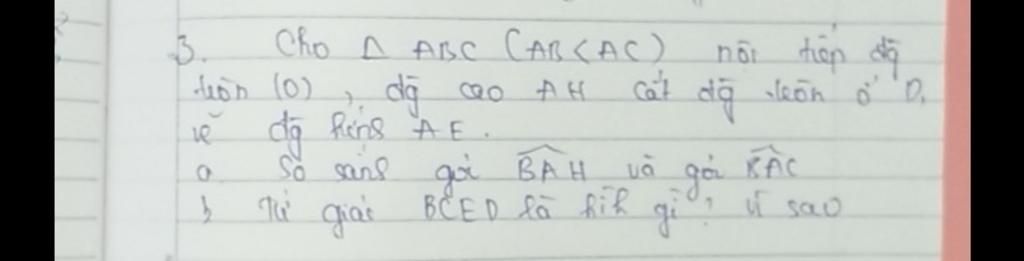 3. Cho Δ ABC (AB<AC) nội tiếp đg
tròn (O), đg cao AH cắt đg tròn ở D.
vẽ đg kính AE.
a So sánh góc BAH và góc EAC
b Tứ giác BCED là hìh gì? vì sao